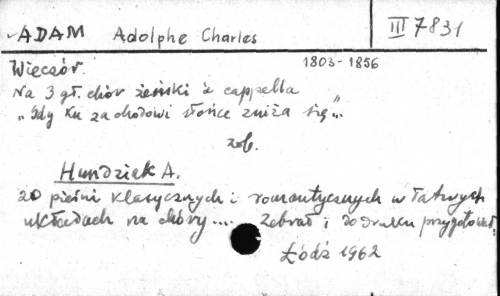 ADAM Adolphe Charles III 7831
Wieczór. 1803-1856
Na 3 gł. chór żeński a cappella
"Gdy ku zachodowi słońce zniża się"..
zob.
Hundziak A.
20 pieśni klasycznych i romantycznych w łatwych
układach na chóry.... Zebrał i do druku przygotował
Łódź 1962